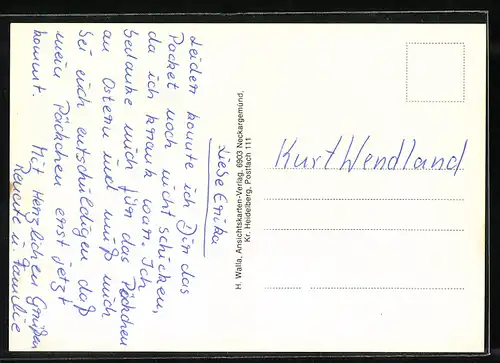 Liebe Erika
Leider konnte ich Dir das
Packet noch nicht schicken,
da ich krank war. Ich
bedanke mich für das Päckchen
an Ostern und muß mich
bei euch entschuldigen daß
mein Päckchen erst jetzt
kommt. Mit Herzlichen Grüßen
Renate u Familie
H. Walla, Ansichtskarten-Verlag, 6903 Neckargemünd,
Kr. Heidelberg, Postfach 111
Kurt Wendland